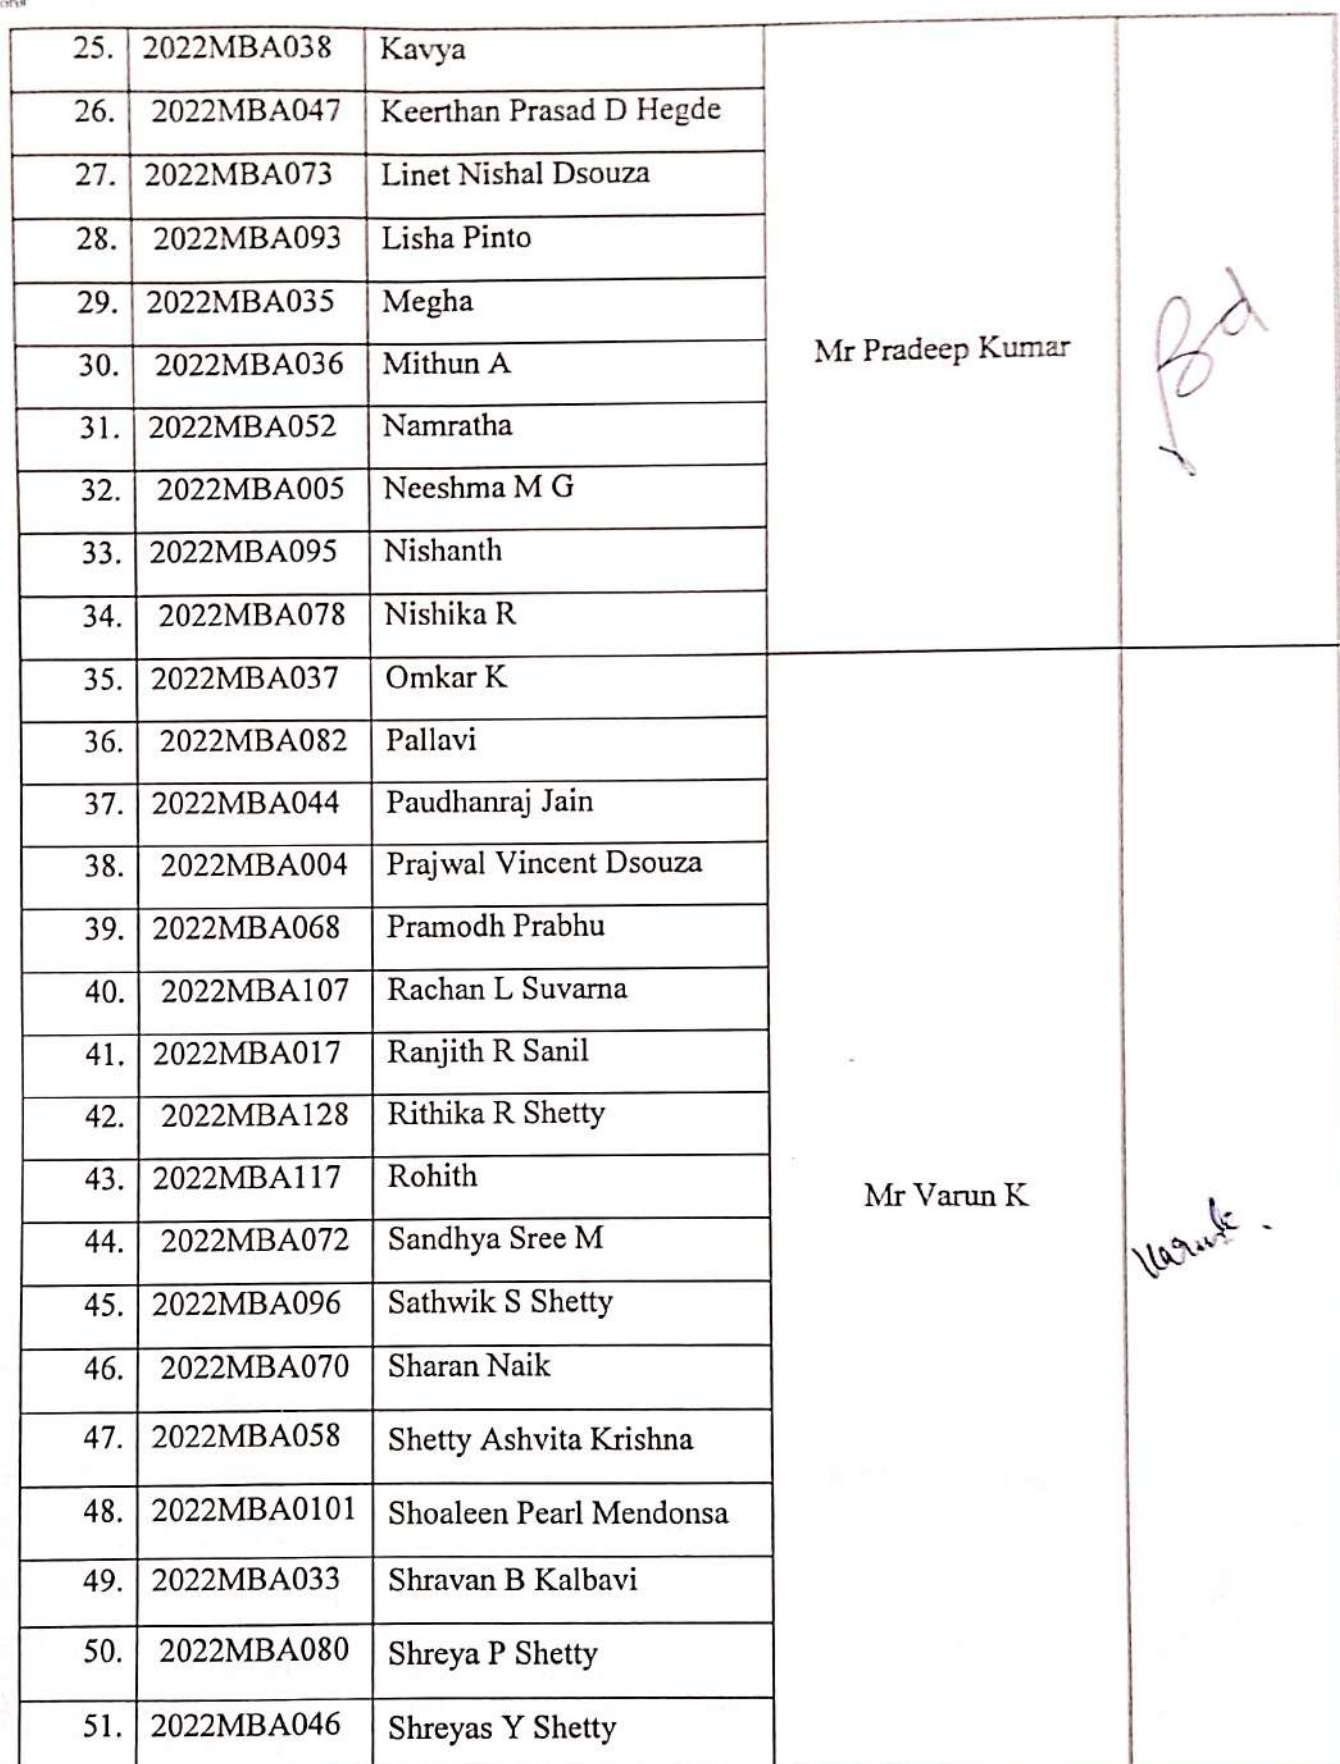 25. 2022MBA038 Kavya
26. 2022MBA047 Keerthan Prasad D Hegde
27. 2022MBA073 Linet Nishal Dsouza
28. 2022MBA093 Lisha Pinto
29. 2022MBA035 Megha
30. 2022MBA036 Mithun A
Mr Pradeep Kumar
31. 2022MBA052 Namratha
32. 2022MBA005 Neeshma M G
33. 2022MBA095 Nishanth
34. 2022MBA078 Nishika R
35. 2022MBA037 Omkar K
36. 2022MBA082 Pallavi
37. 2022MBA044 Paudhanraj Jain
38. 2022MBA004 Prajwal Vincent Dsouza
39. 2022MBA068 Pramodh Prabhu
40. 2022MBA107 Rachan L Suvarna
41. 2022MBA017 Ranjith R Sanil
42. 2022MBA128 Rithika R Shetty
43. 2022MBA117 Rohith
Mr Varun K
44. 2022MBA072 Sandhya Sree M
45. 2022MBA096 Sathwik S Shetty
46. 2022MBA070 Sharan Naik
47. 2022MBA058 Shetty Ashvita Krishna
48. 2022MBA0101 Shoaleen Pearl Mendonsa
49. 2022MBA033 Shravan B Kalbavi
50. 2022MBA080 Shreya P Shetty
51. 2022MBA046 Shreyas Y Shetty